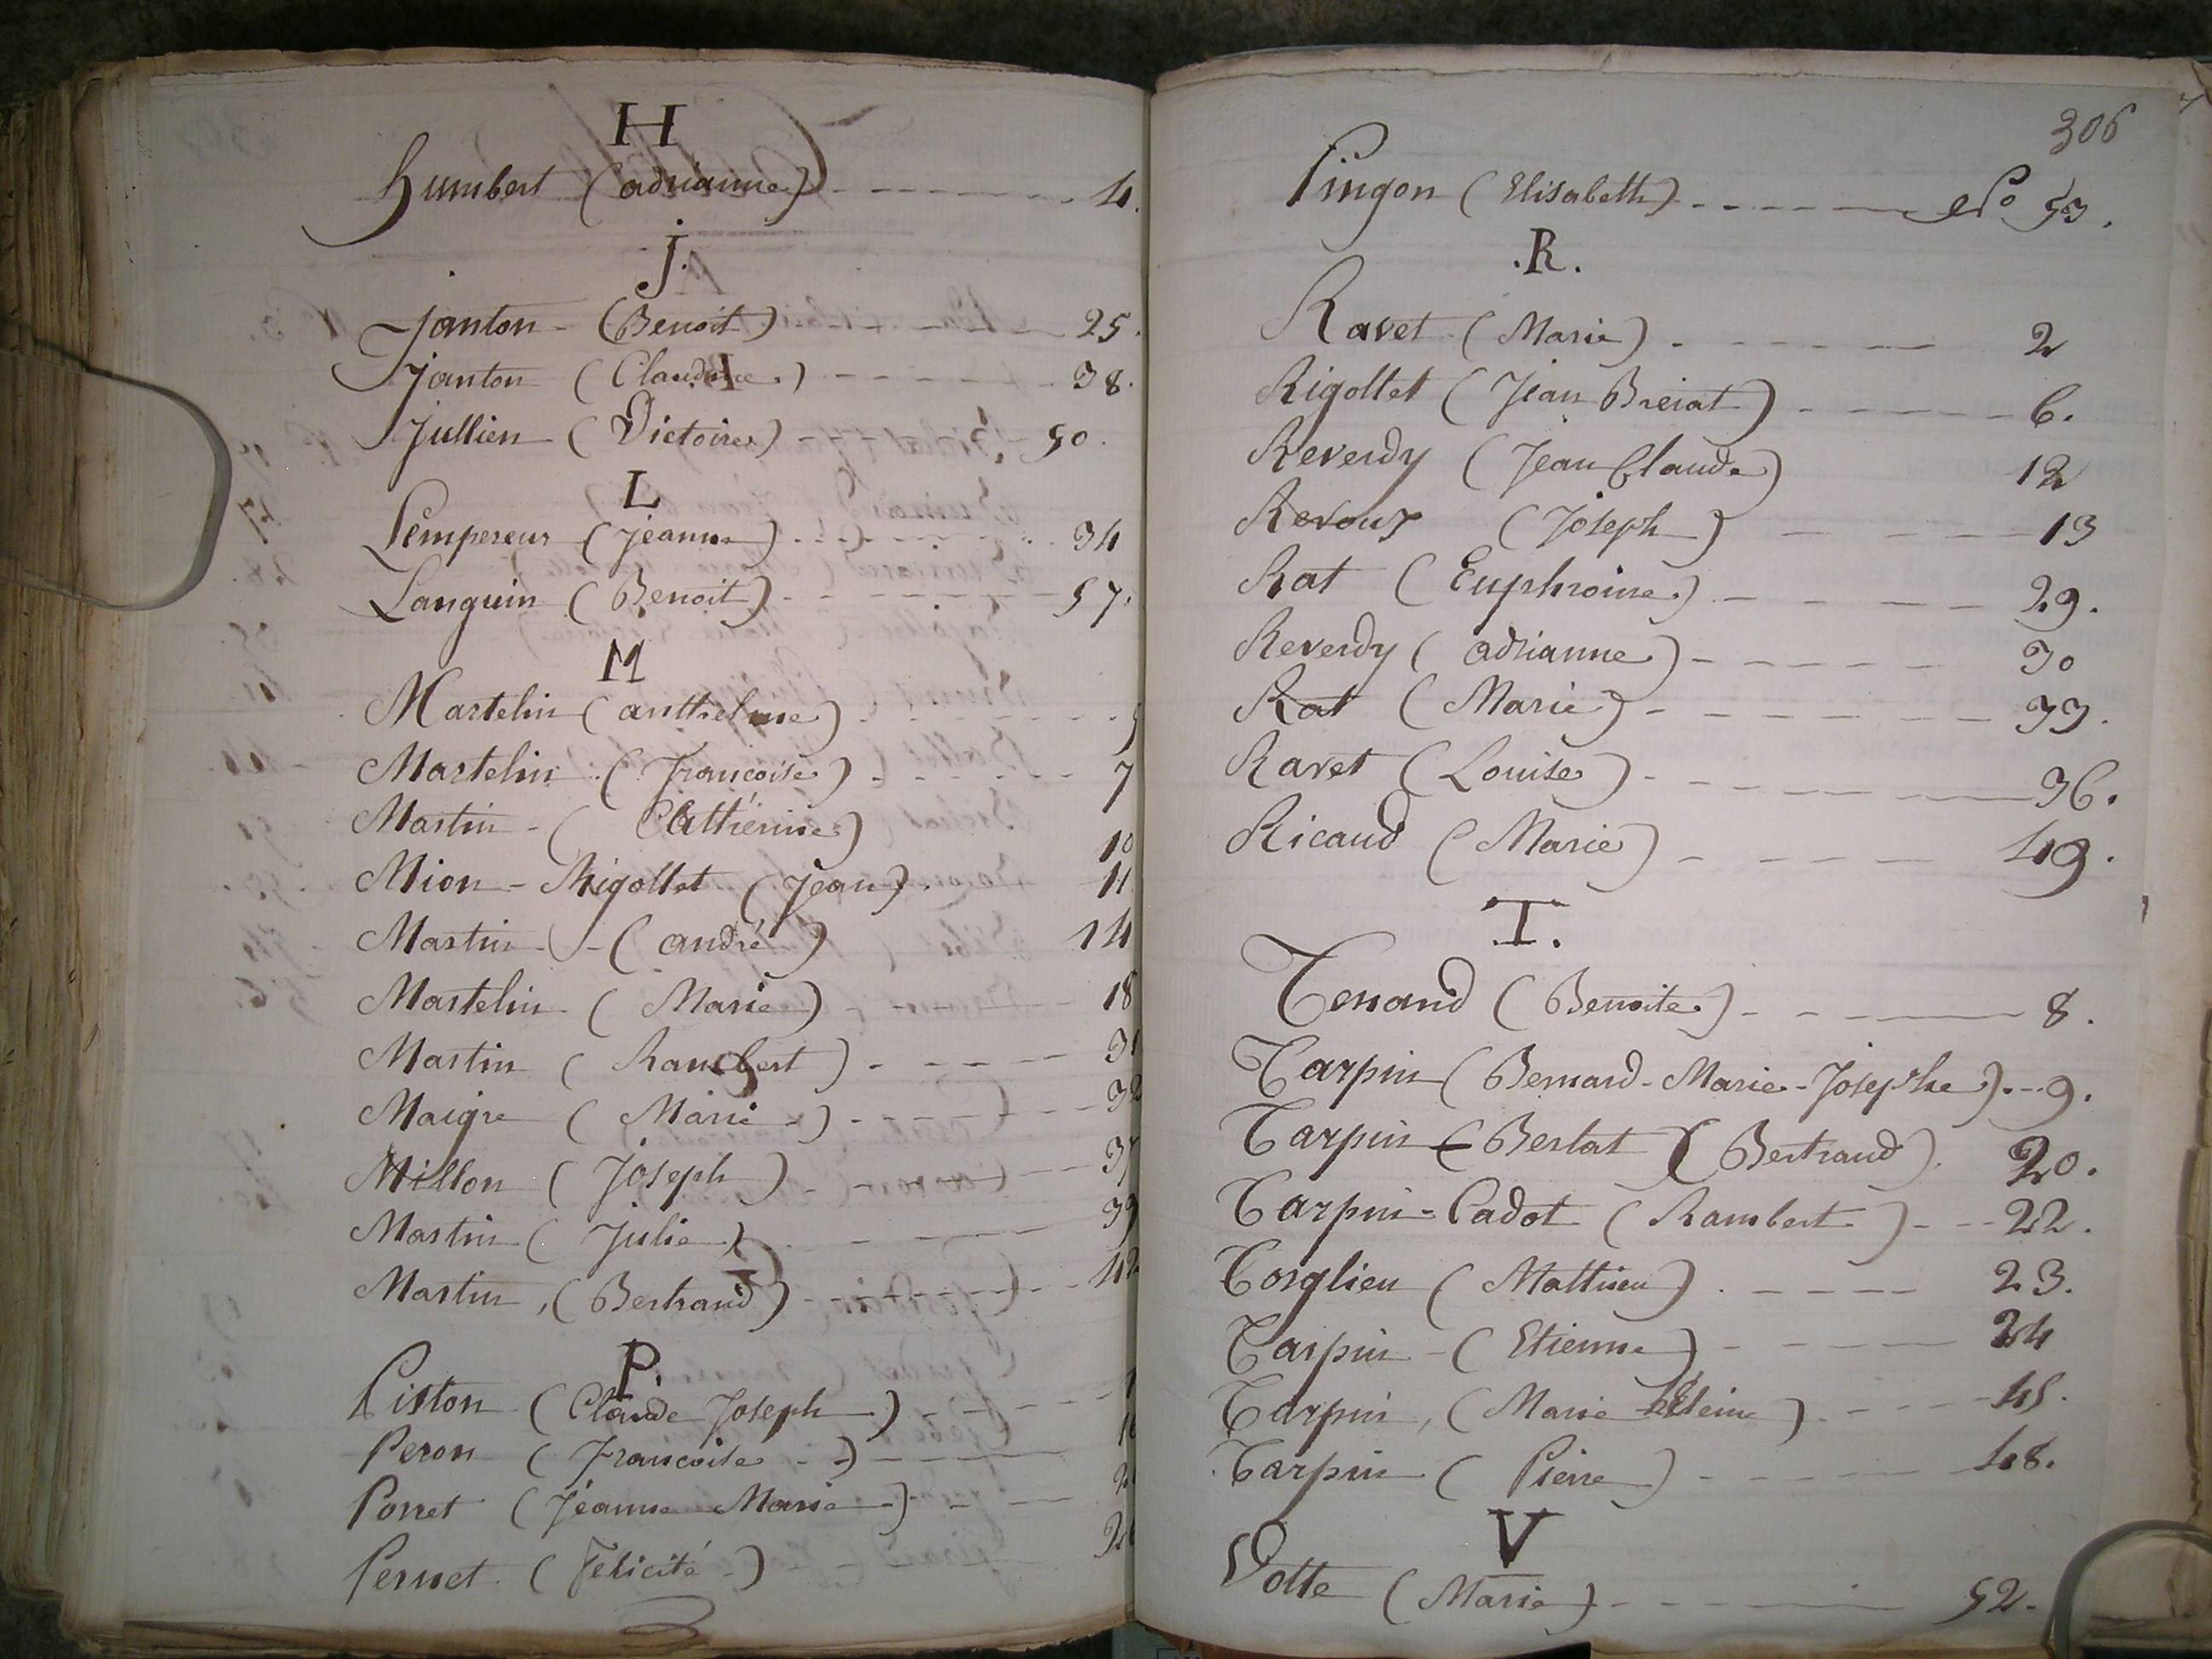 H
humbert (adrianne) 4.
j.
janton (Benoit) 25.
janton (Claudine) 38.
jullien (Victoire) 50.
L
Lempereur (jeanne) 34
Languin (Benoit) 57.
M
Martelin (anthelme)
Martelin (françoise) 7
Martin (Cathérine) 10
Mion-Rigollet (jean). 11
Martin (andré) 14
Martelin (Marie) 18
Martin (Rambert)
Maigre (Marie)
Millon (joseph)
Martin (julie)
Martin, (Bertrand)
P.
Piston (Claude joseph)
Peron (françoise)
Porret (jeanne Marie)
Pernet (félicité)
306
Pingon (Elisabeth) No 53.
.R.
Ravet (Marie) 2
Rigollet (jean) 6.
Reverdy (jean Claude) 12
Revoux (joseph) 13
Rat (Euphroine) 29.
Reverdy (adrianne) 30
Rat (Marie) 33.
Ravet (Louise) 36.
Ricaud (Marie) 49.
.T.
Tenand (Benoite) 8.
Tarpin (Bernard-Marie-josephe) 9.
Tarpin (Berlat) (Bertrand). 20.
Tarpin-Cadot (Rambert) 22.
Torglieu (Mathieu) 23.
Tarpin (Etienne) 24
Tarpin, (Marie) 45.
Tarpin (Pierre) 48.
V
Votte (Marie) 52.